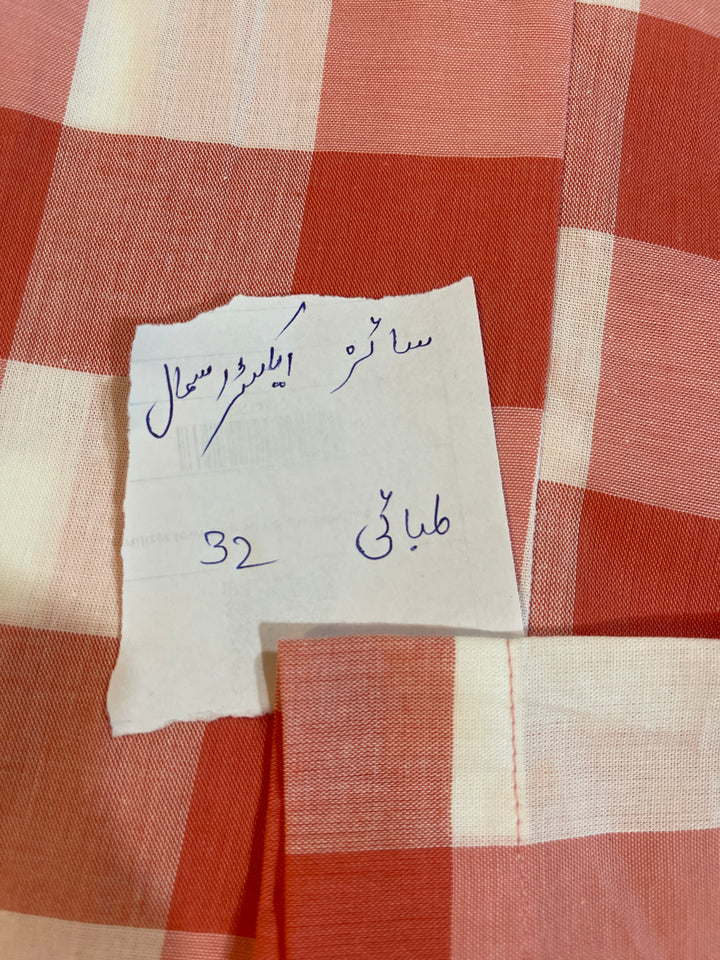 سائز ایکسٹرا سمال
لمبائی 32